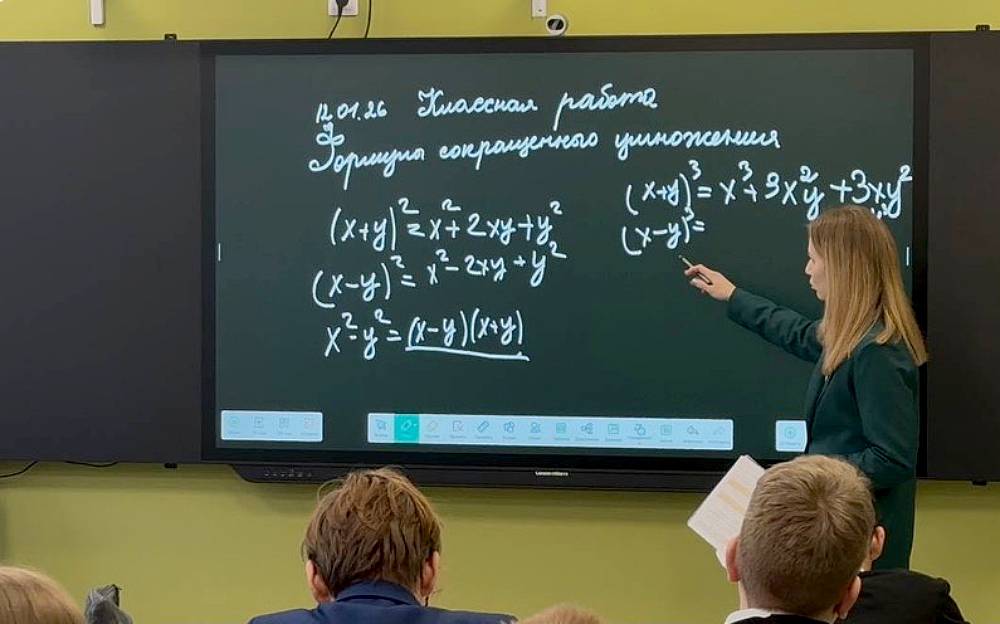 12.01.26 Классная работа
Формулы сокращенного умножения
(x+y)²=x²+2xy+y²
(x-y)²=x²-2xy+y²
x²-y²=(x-y)(x+y)
(x+y)³=x³+3x²y+3xy²
(x-y)³=